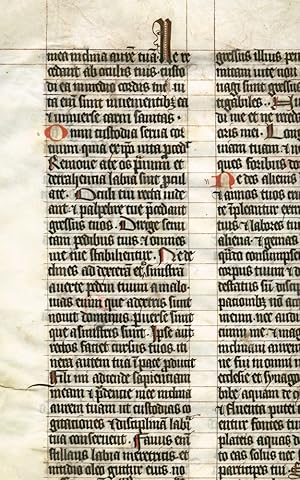 mea inclina aurē tuā. Ne re
cedant ab oculis tuis custo
di ea in medio cordis tui. ui
ta enī sunt inuenientibꝫ ea
⁊ uniuerse carni sanitas.
Omni custodia serua cor
tuum quia ex ip̄o uita p̄ced̄
Remoue a te os prauum et
detrahentia labia sint p̄cul
a te. Oculi tui recta uide
ant ⁊ palpebre tue p̄cedant
gressus tuos. Dirige semi
tam pedibus tuis ⁊ omnes
uie tue stabilientur. Ne de
clines ad dexterā ⁊ sinistrā
auerte pedem tuum a malo
uias enim que a dextris sunt
nouit dominus puerse sunt
que a sinistris sunt. Ipse aut̄
rectos faciet cursus tuos iti
nera autem tua ī pace p̄ducet
Fili mi adtende sapientiam
meam ⁊ prudencie mee inclina
aurem tuam ut custodias co
gitationes ⁊ disciplinā labia
tua conseruent. Fauus enī
stillans labia meretricis et
nitidio oleo guttur eius no
gressus illius
mitam uite non
uagi sunt gressus
tigabiles.
di me et ne
oris mei. Lon
uiam tuam ⁊ n
ques foribus do
Ne des alienis
⁊ annos tuos
te īpleantur extr
tuis ⁊ labores tu
aliena. ⁊ gemas
qn̄do consumpse
corpus tuum ⁊ d
testatus sū disci
nacionibꝫ nō ac
meum nec audi
tium me ⁊ mag
inclinaui aurem
pene fui in omni
ecclesie ⁊ synago
bibe aquam de
⁊ fluenta putei
entur fontes tu
plateis aquas d
to eas solus nec
participes tui